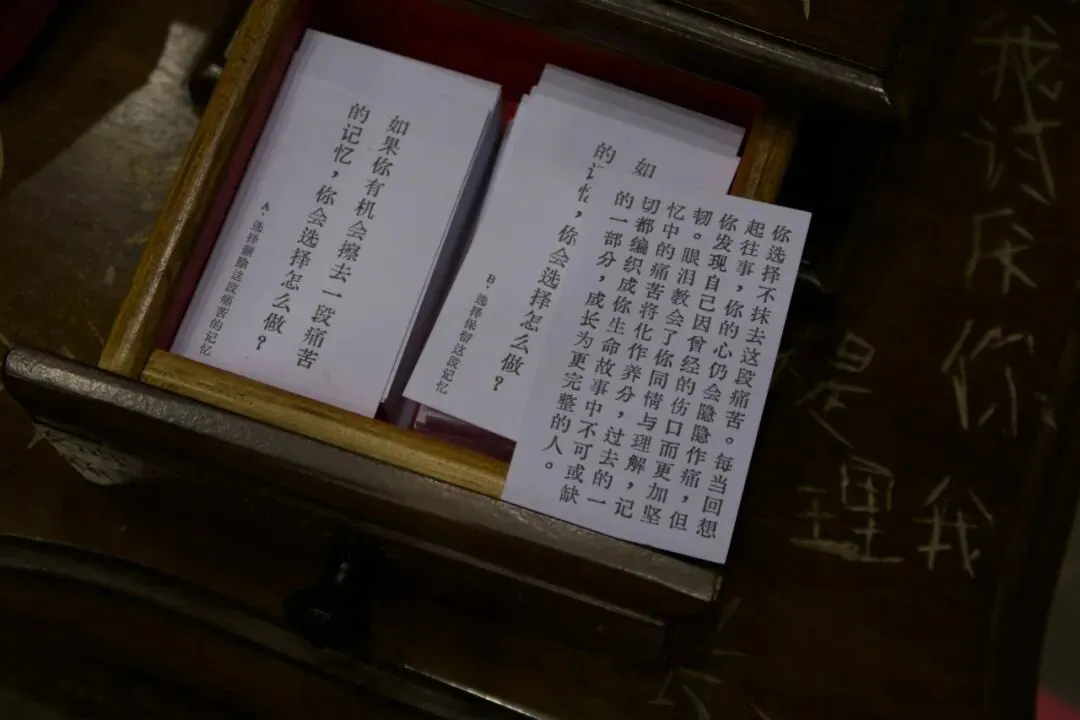 如果你有机会擦去一段痛苦
的记忆，你会选择怎么做？
A、选择删除这段痛苦的记忆
如
的记忆，你会选择怎么做？
B、选择保留这段记忆
你选择不抹去这段痛苦。每当回想
起往事，你的心仍会隐隐作痛，但
你发现自己因曾经的伤口而更加坚
韧。眼泪教会了你同情与理解，记
忆中的痛苦将化作养分，过去的一
切都编织成你生命故事中不可或缺
的一部分，成长为更完整的人。
我讨厌你们
是
理我